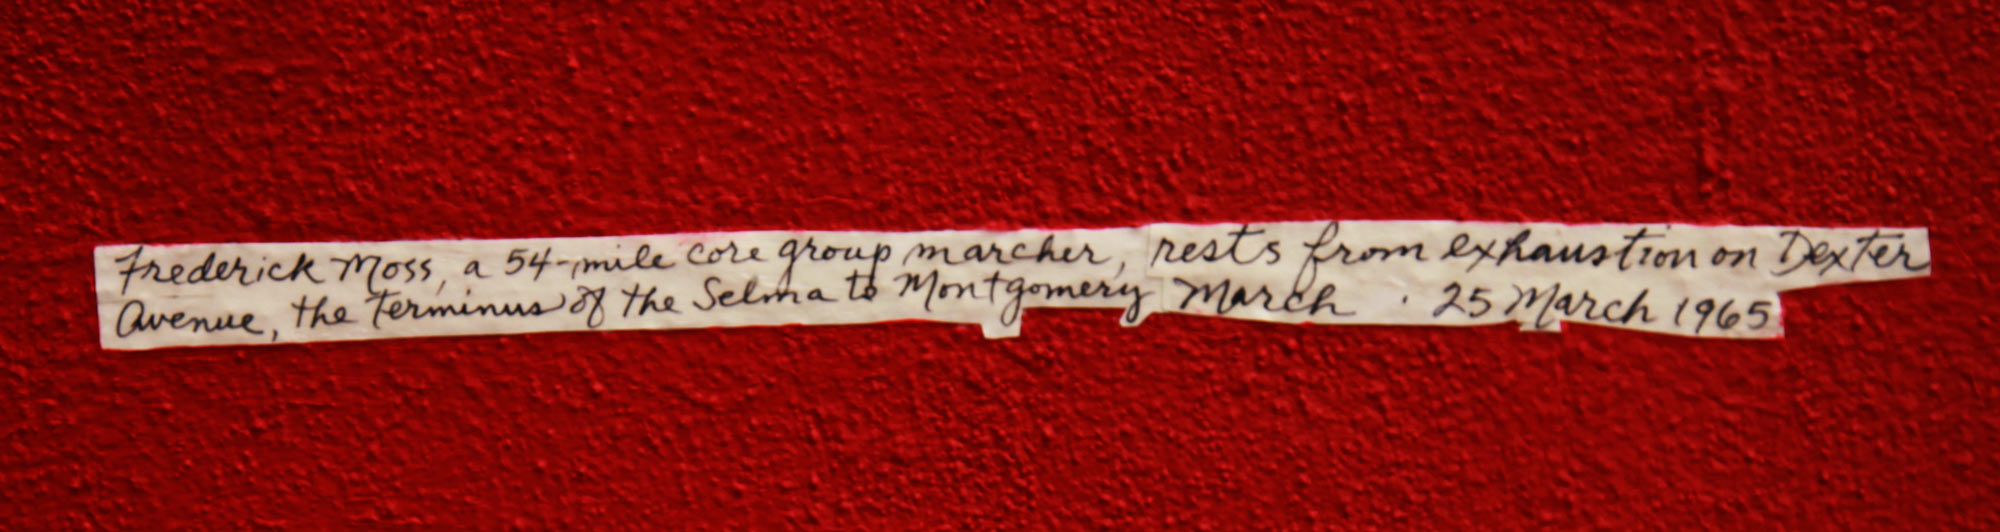 Frederick Moss, a 54-mile core group marcher, rests from exhaustion on Dexter
Avenue, the Terminus of the Selma to Montgomery March · 25 March 1965